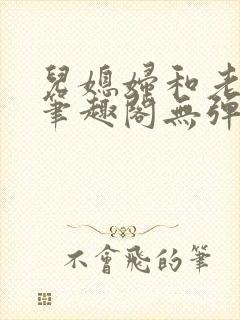 兒媳婦和老
筆趣閣無彈
不會飛的筆